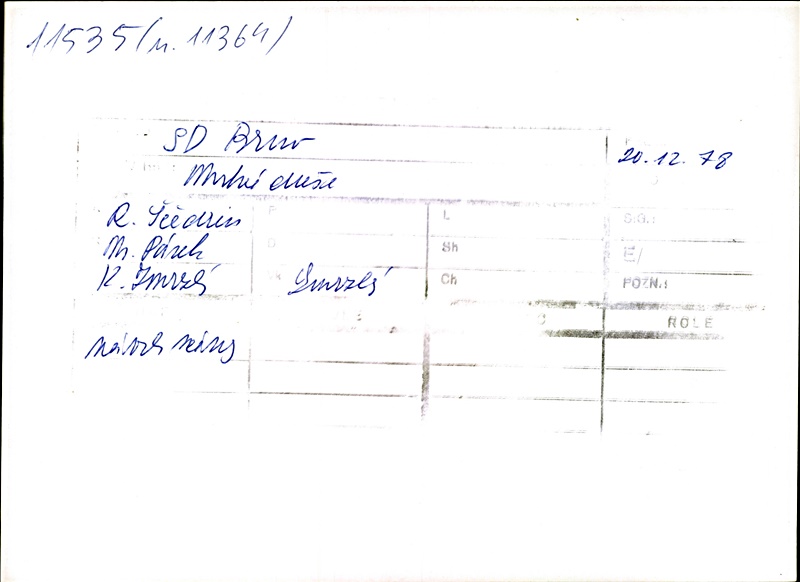 11535 (n. 11364)
SD Brno
20.12.78
Mrtvé duše
R. Ščedrin
L
M. Pásek
Sh
E/
K. Zmrzlý
Zmrzlý
Ch
POZN.:
ROLE
návrh scény